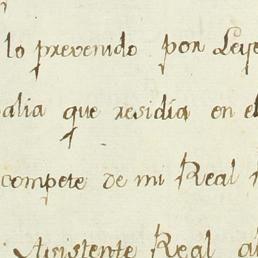 lo prevenido por Leye
alia que residia en el
compete de mi Real
Asistente Real